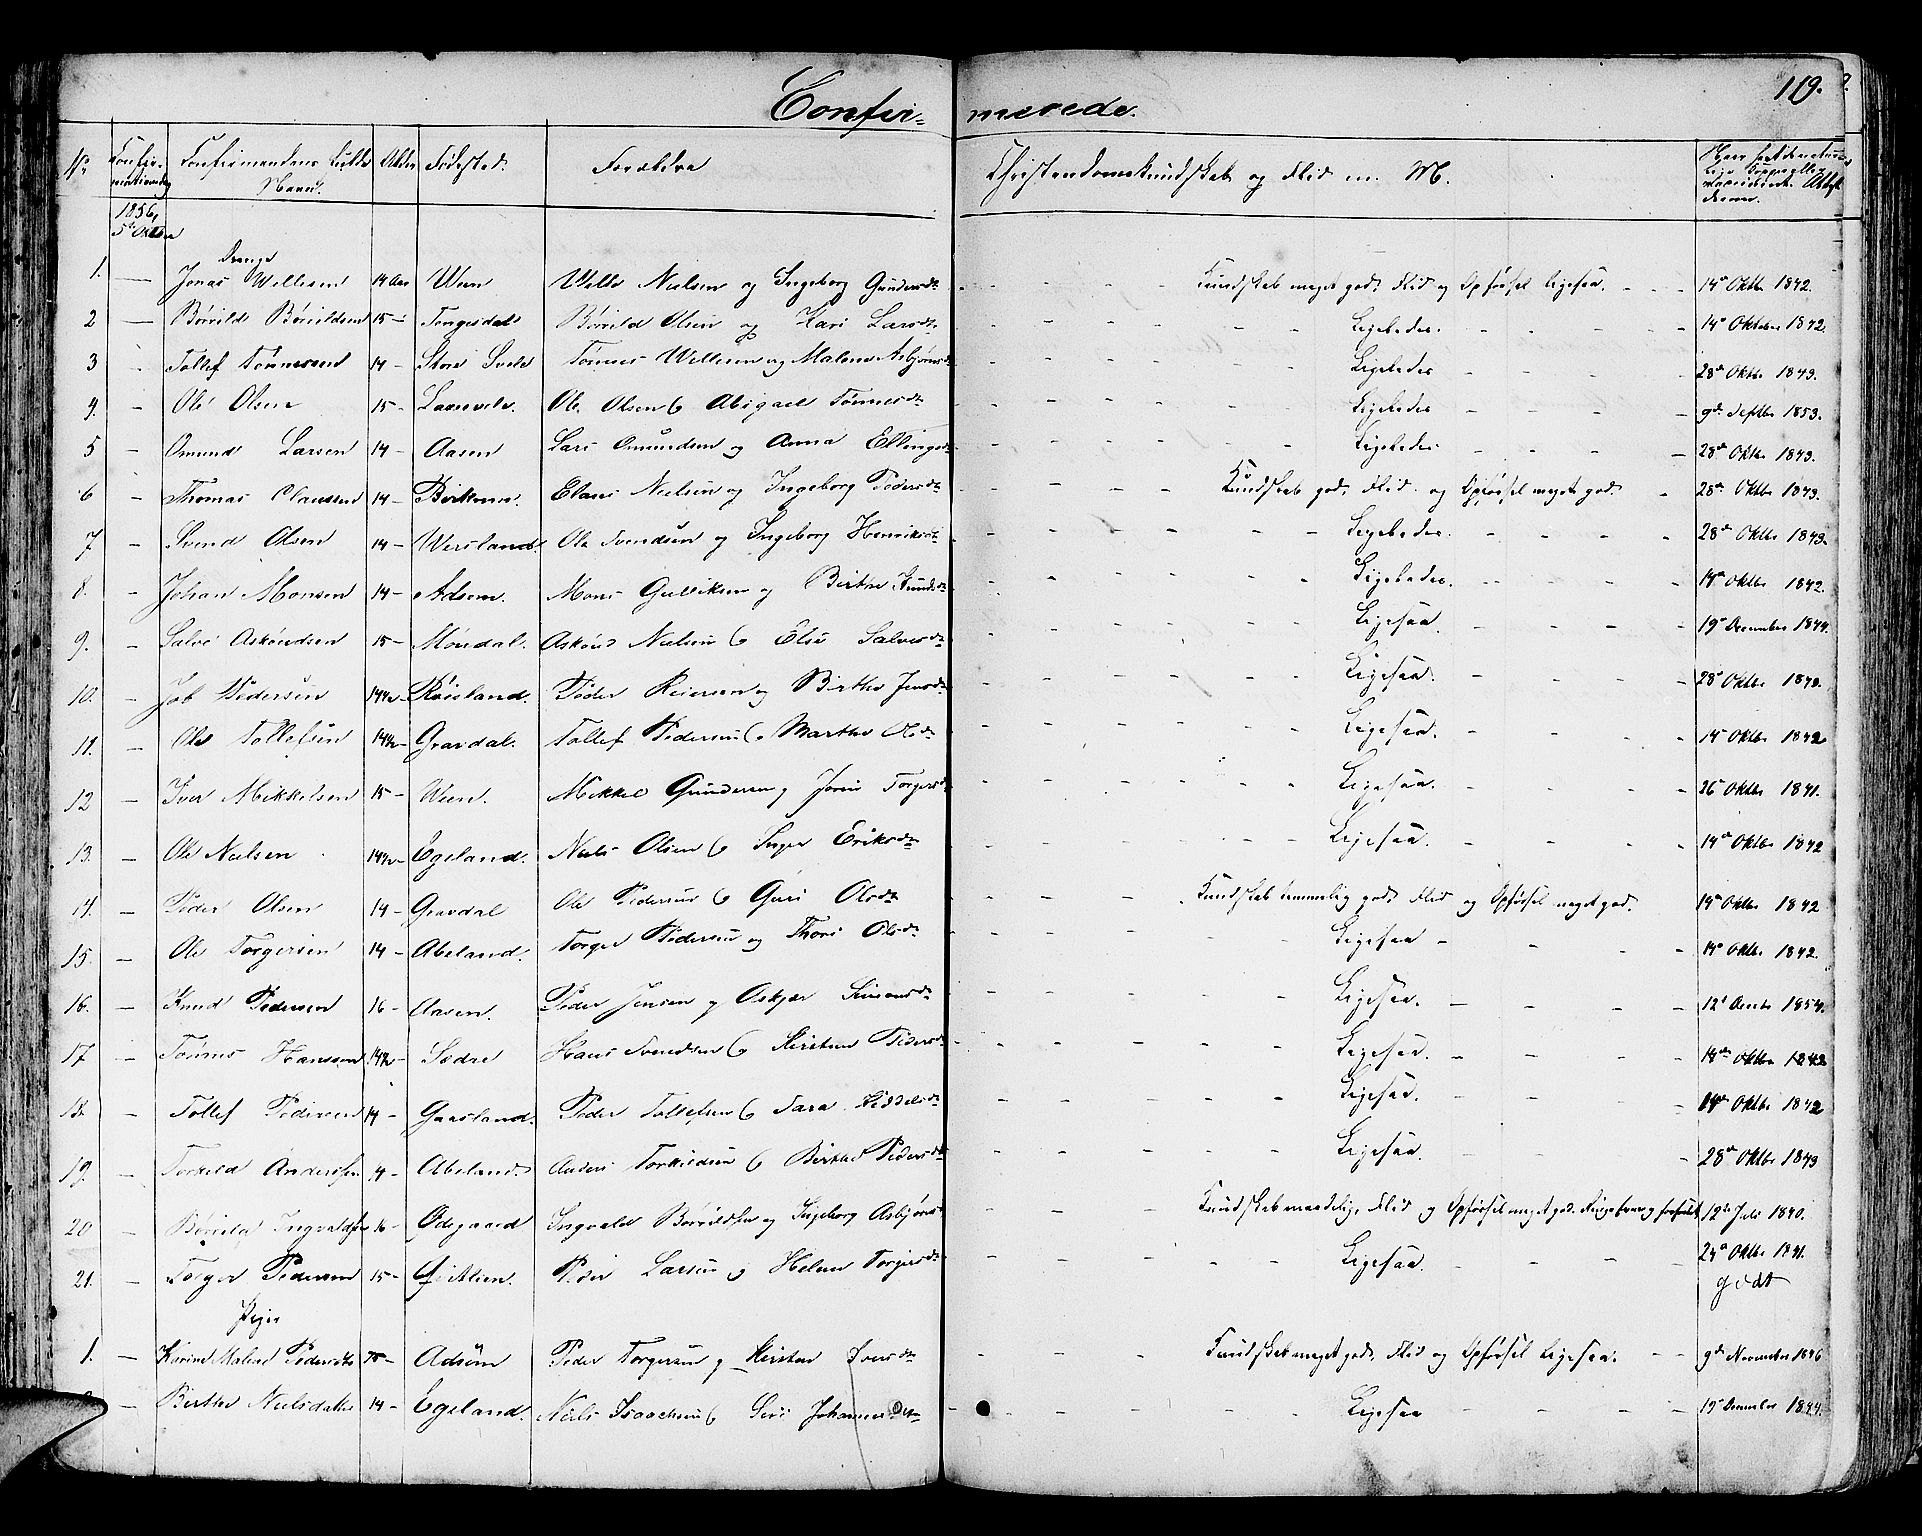 Confir=merede.
119.
No Confirmationsdag Confirmandens fulde Navn. Alder Fødested. Forældre Christendomskundskab og Flid m. M. Naar sat de naturlige Kopper eller vaccinerede Attest derom
1856,
5te Oktober
Drenge
1. — Jonas Willesen 14 Aar Ween Wille Nielsen og Ingeborg Gundersdtr Kundskab meget god, Flid og Opførsel ligesaa. 14de Oktbr 1842.
2 — Børrild Børrildsen 15 - Tengesdal Børrild Olsen og Kari Larsdtr Ligeledes. 14de Oktober 1842.
3 - Tollef Tønnesen 14 - Store Svele Tønnes Willesen og Malene Asbjørnsdtr Ligeledes 28de Oktbr 1843.
4. - Ole Olsen 15 - Ole Olsen & Abigael Tønnesdtr Ligeledes 9de Septbr 1853.
5 - Omund Larsen 14 - Aasen Lars Omundsen og Anna Ellingsdtr Ligeledes 28de Oktbr 1843.
6 - Thomas Clausen 14 - Birkemo. Claus Nielsen og Ingeborg Pedersdtr Kundskab god, Flid og Opførsel meget god. 28de Oktbr 1843.
7 - Svend Olsen 14 - Wersland. Ole Svendsen og Ingeborg Henriksdtr Ligeledes. 28de Oktbr 1843.
8. - Johan Monsen 14 - Adsem. Mons Gulliksen og Birthe Gundsdtr Ligeledes. 14de Oktbr 1842.
9. - Salve Askoudsen 15 - Mondal. Askoud Nielsen & Else Salvesdtr Ligesaa. 19de December 1844.
10. - Job Pedersen 14½ - Røisland. Peder Reiersen og Birthe Jensdtr Ligesaa. 28de Oktbr 1843.
11. - Ole Tollefsen 14½ - Gravdal. Tollef Pedersen & Marthe Olsdtr Ligesaa. 14de Oktbr 1842
12 - Iver Mikkelsen 15 - Ween. Mikkel Gundersen og Joren Torgersdtr Ligesaa. 26de Oktbr 1841.
13. - Ole Nielsen 14½ - Egeland. Niels Olsen & Inger Eriksdtr Ligesaa. 14de Oktbr 1842
14. - Peder Olsen 14 - Gravdal Ole Pedersen & Guri Olsdtr Kundskab temmelig god, Flid og Opførsel meget god. 14de Oktbr 1842
15. - Ole Torgersen 14 - Abeland. Torger Pedersen og Thori Olsdtr Ligesaa 14de Oktbr 1842.
16. - Knud Pedersen 16 - Aasen. Peder Jensen og Askjær Simonsdtr Ligesaa. 12te Decbr 1854.
17 - Tønnes Hanssen 14½ - Sædre Hans Svendsen & Kirsten Pedersdtr Ligesaa. 14de Oktbr 1842
18. - Tollef Pedersen 14 - Gaasland. Peder Tollefsen & Sara Kiddelsdtr Ligesaa. 14de Oktbr 1842
19. - Torkild Anderssen 14 - Abeland. Anders Torkildsen & Birthe Pedersdtr Ligesaa. 28de Oktbr 1843
20 - Børrild Ingvaldsen 16 - Ødegaard Ingvald Børrildsen og Ingeborg Asbjørnsdtr Kundskab maadelig, Flid og Opførsel meget god. 12te Juli 1840.
21. - Torger Pedersen 15 - Peder Larsen og Helene Torgersdtr Ligesaa. 24de Oktbr 1841.
godt
Piger
1. — Karine Malene Pedersdtr 15 - Adsem Peder Torgersen og Kirsten Iversdtr Kundskab meget god, Flid og Opførsel ligesaa. 9de November 1846
- Birthe Nielsdatter 14 - Egeland. Niels Isaachsen & Siri Johannesdtr Ligesaa 19de December 1844.